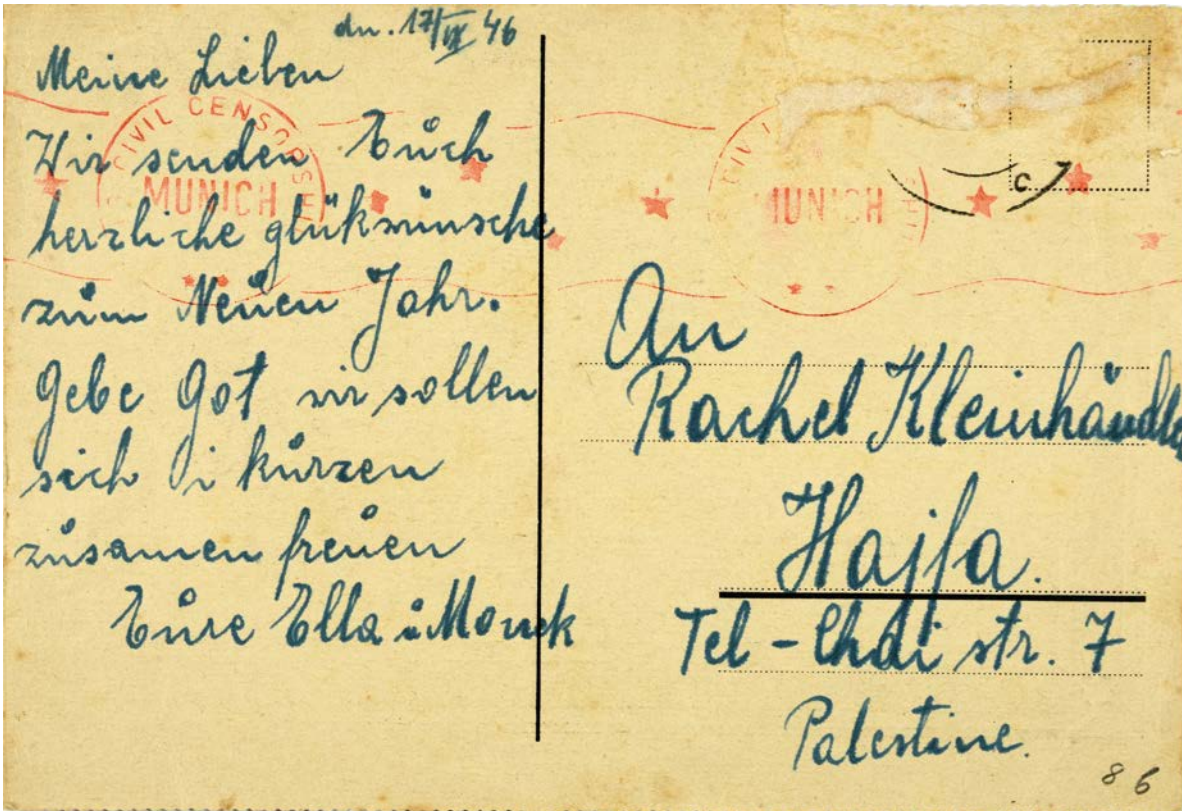 dn. 17/IX 46
Meine Lieben
Wir senden Euch
herzliche glükwünsche
zum Neuen Jahr.
Gebe Got wir sollen
sich i kurzen
zusamen freuen
Eure Ella u
CIVIL CENSORS
MUNICH
CIVIL
MUNICH
C
An
Rachel Kleinhändle
Hajfa.
Tel-Chai str. 7
Palestine.
86